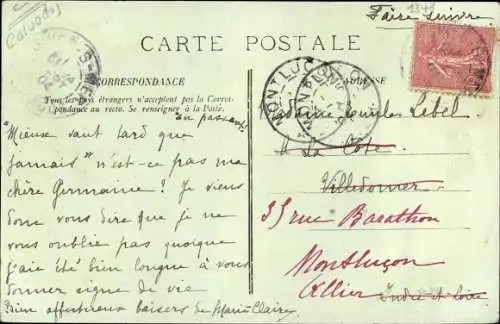 Calvados
Faire suivre
CARTE POSTALE
CORRESPONDANCE
ADRESSE
Tous les pays étrangers n'acceptent pas la Corres-
pondance au recto. Se renseigner à la Poste.
MONTLUÇON
En passant
"Mieux vaut tard que
jamais" n'est-ce pas ma
chère Germaine? Je viens
donc vous dire que je ne
vous oublie pas quoique
j'aie été bien longue à vous
donner signe de vie
Bien affectueux baisers de Marie Claire
Madame Lebel
La Côte
Villedomer
35 rue Barathon
Montluçon
Allier
Indre et Loire